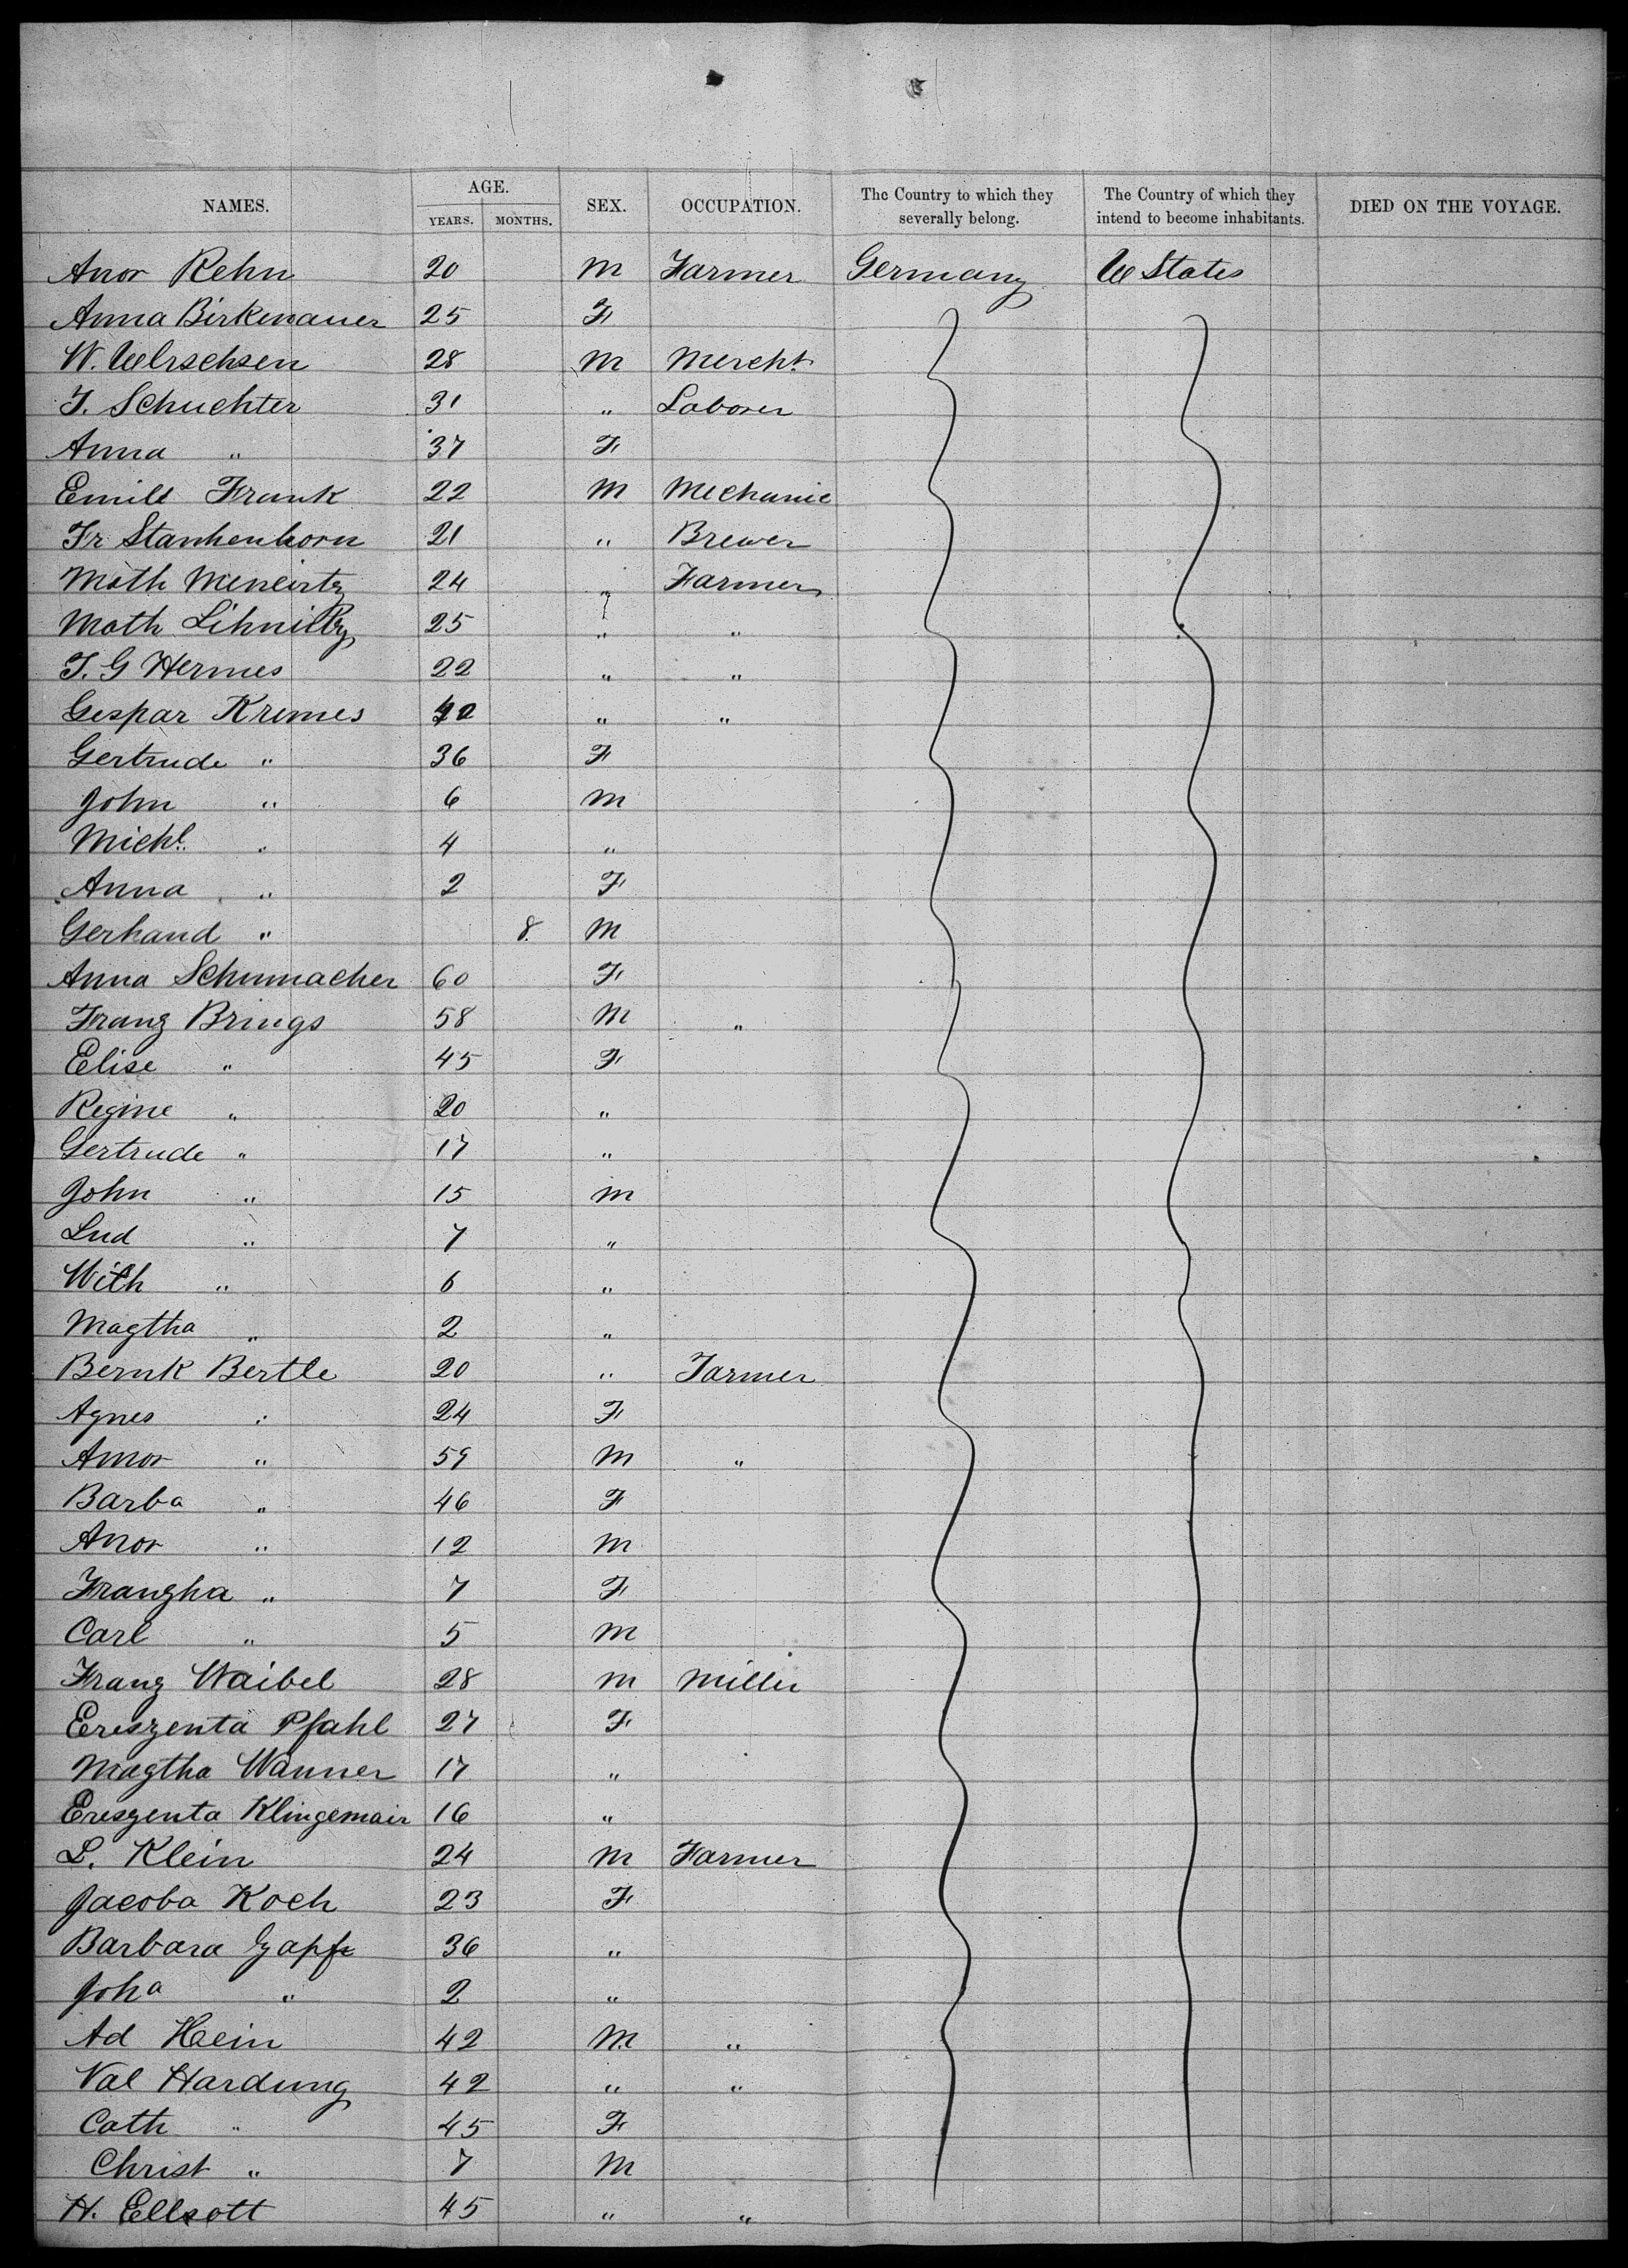 NAMES. AGE. YEARS. MONTHS. SEX. OCCUPATION. The Country to which they severally belong. The Country of which they intend to become inhabitants. DIED ON THE VOYAGE.
Anor Rehn 20 M Farmer Germany U States
Anna Birkenauer 25 F
W. Ulrschsen 28 M Mercht
J. Schuchter 31 " Laborer
Anna " 37 F
Emile Frank 22 M Mechanic
Fr Stanhenhorn 21 " Brewer
Math Meneirtz 24 " Farmer
Math 25 " "
J. G Hermes 22 " "
Gespar Kremes 42 " "
Gertrude " 36 F
John " 6 M
Michl. " 4 "
Anna " 2 F
Gerhand " 8 M
Anna Schumacher 60 F
Franz Brings 58 M "
Elise " 45 F
Regine " 20 "
Gertrude " 17 "
John " 15 M
Lud " 7 "
With " 6 "
Magtha " 2 "
Bernk Bertle 20 " Farmer
Agnes " 24 F
Amor " 59 M "
Barba " 46 F
Anor " 12 M
Franzha " 7 F
Carl " 5 M
Franz Waibel 28 M Miller
Creszenta Pfahl 27 F
Magtha Wanner 17 "
Creszenta Klingemair 16 "
L. Klein 24 M Farmer
Jacoba Koch 23 F
Barbara Zapfe 36 "
Joha " 2 "
Ad Hein 42 M "
Val Hardung 42 " "
Cath " 45 F
Christ " 7 M
H. Ellsott 45 " "